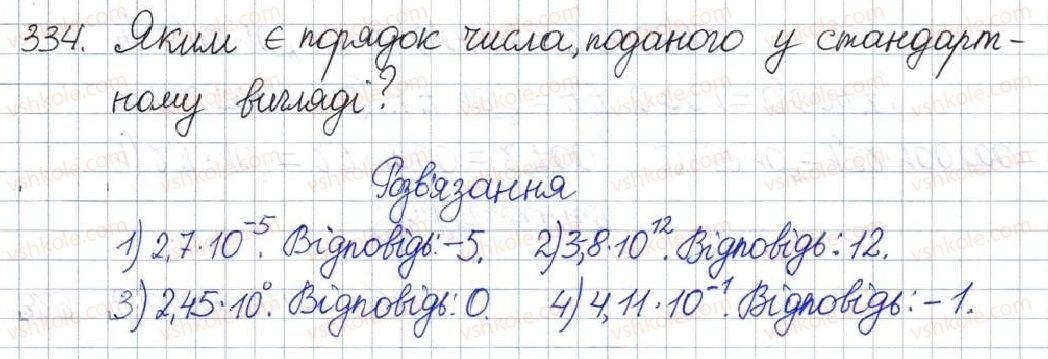 334. Яким є порядок числа, поданого у стандарт-
ному вигляді?
Розв'язання
1) 2,7·10⁻⁵. Відповідь: -5. 2) 3,8·10¹². Відповідь: 12.
3) 2,45·10⁰. Відповідь: 0 4) 4,11·10⁻¹. Відповідь: -1.